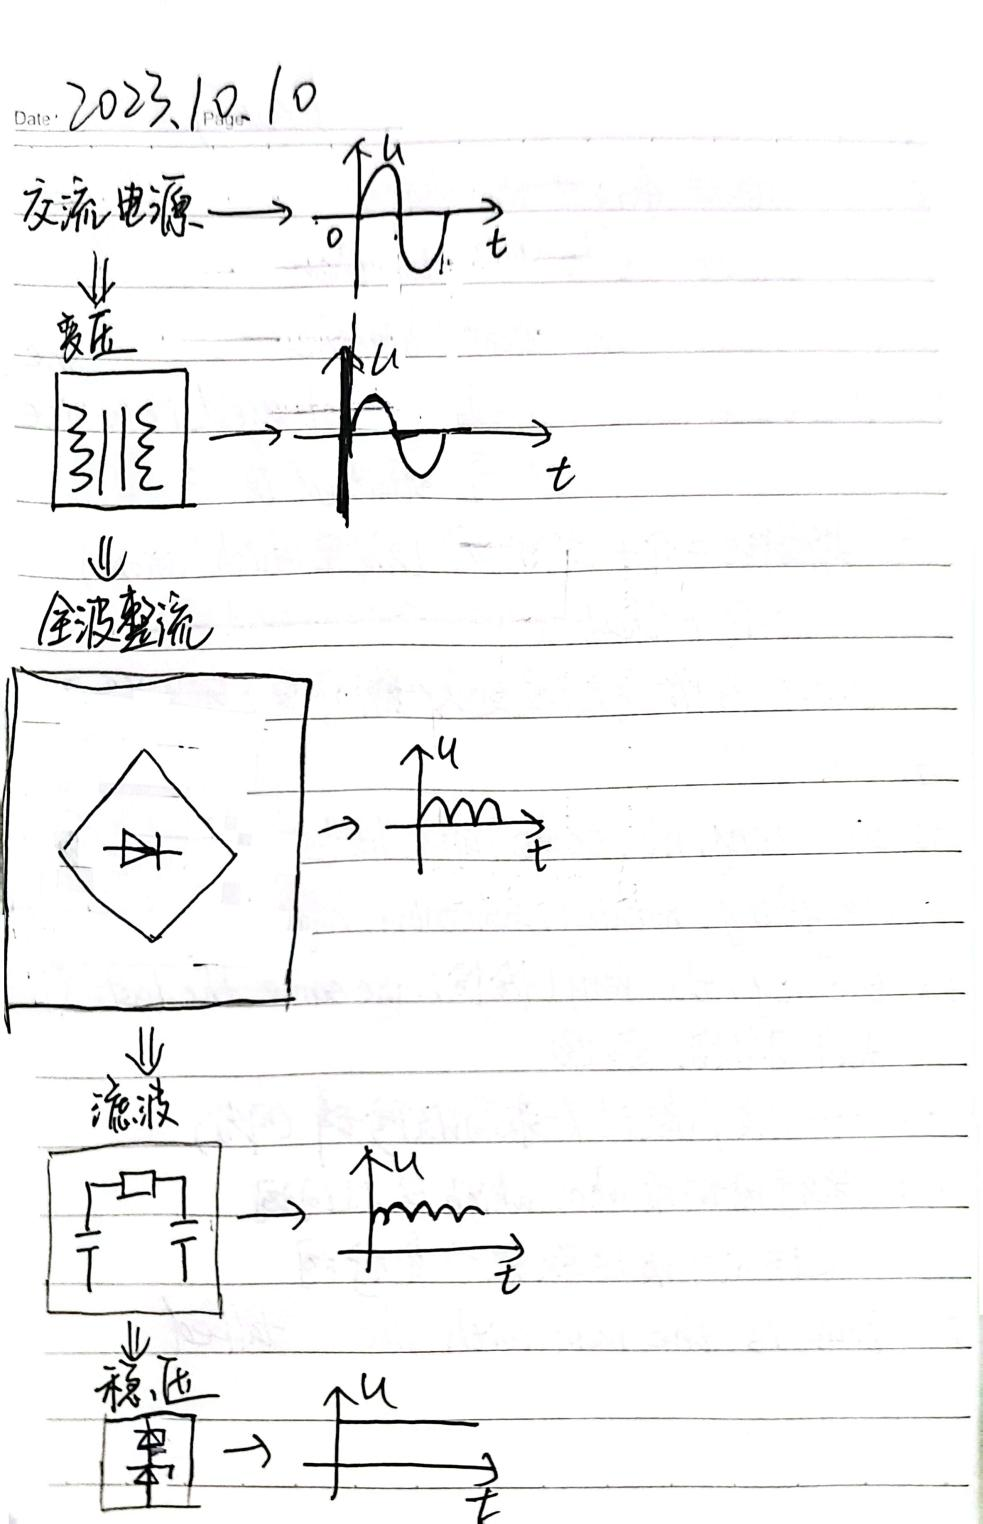 Date: 2023.10.10 Page
交流电源 u
0 t
变压
u
t
全波整流
u
t
滤波
u
t
稳压
u
t